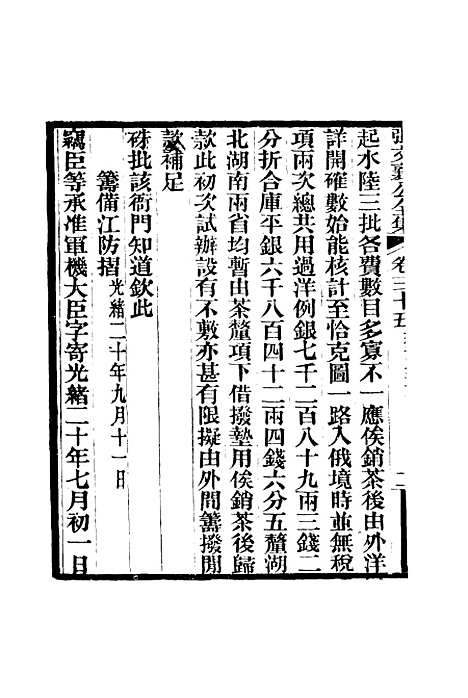 起水陸三批各費數目多寡不一應俟銷茶後由外洋
詳開確數始能核計至恰克圖一路入俄境時並無稅
項兩次總共用過洋例銀七千二百八十九兩三錢二
分折合庫平銀六千八百四十二兩四錢六分五釐湖
北湖南兩省均暫由茶釐項下借撥墊用俟銷茶後歸
款此初次試辦設有不敷亦甚有限擬由外間籌撥閒
款補足
硃批該衙門知道欽此
籌備江防摺光緒二十年九月十一日
竊臣等承准軍機大臣字寄光緒二十年七月初一日